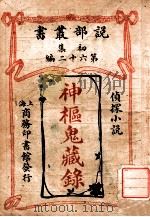 説部叢書
初集
第六十二編
偵探小説
神樞鬼藏錄
上海商務印書館發行